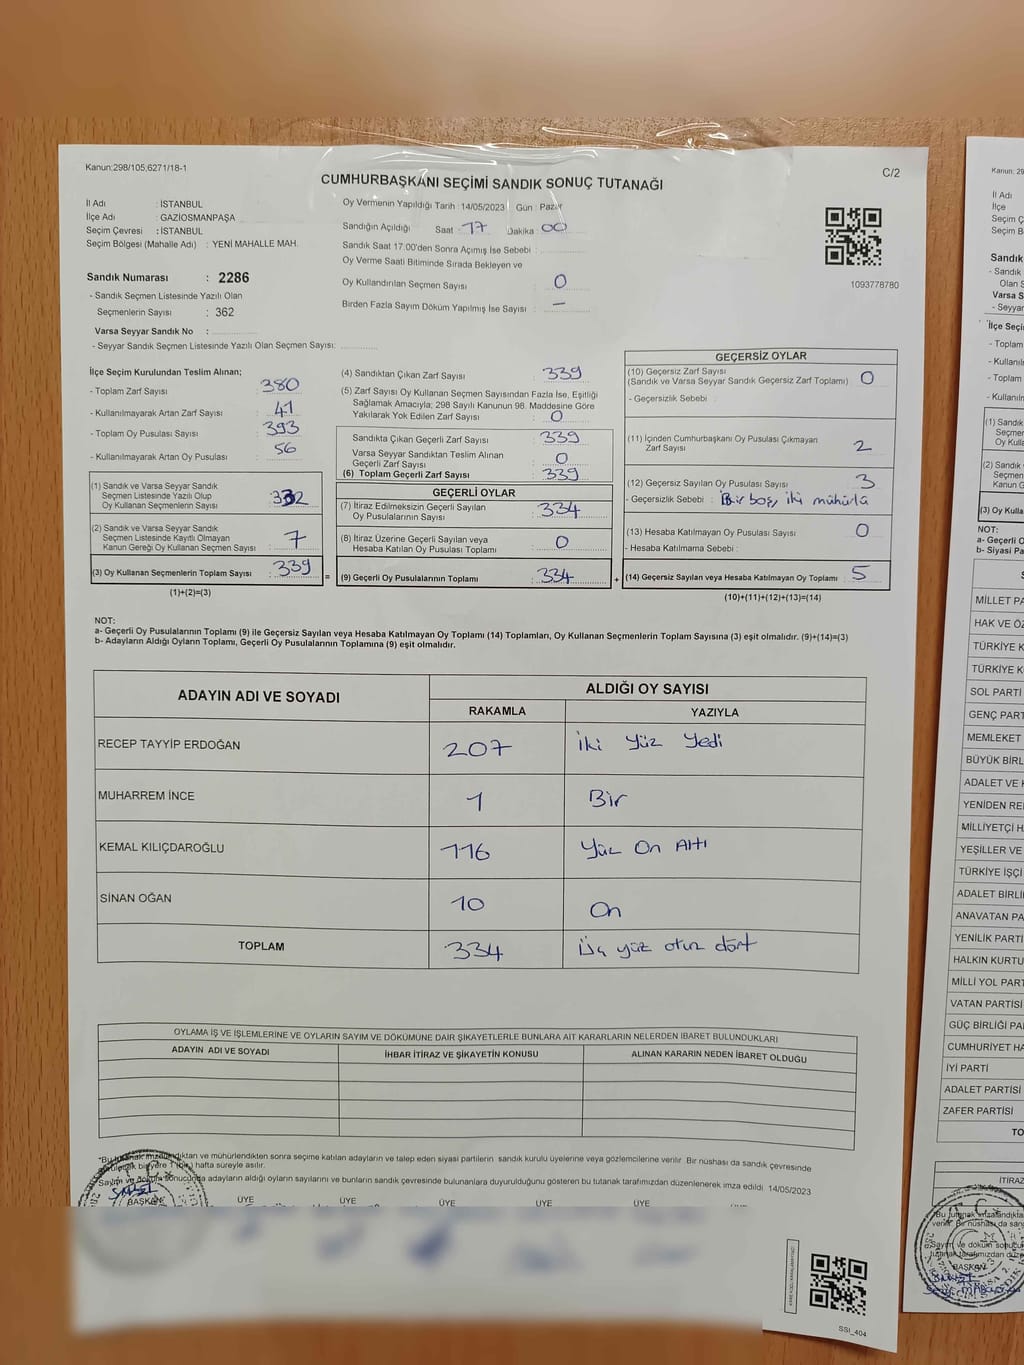 Kanun:298/105;6271/18-1
C/2
CUMHURBAŞKANI SEÇİMİ SANDIK SONUÇ TUTANAĞI
İl Adı : İSTANBUL
İlçe Adı : GAZİOSMANPAŞA
Seçim Çevresi : İSTANBUL
Seçim Bölgesi (Mahalle Adı) : YENİ MAHALLE MAH.
Sandık Numarası : 2286
- Sandık Seçmen Listesinde Yazılı Olan
Seçmenlerin Sayısı : 362
Varsa Seyyar Sandık No :
- Seyyar Sandık Seçmen Listesinde Yazılı Olan Seçmen Sayısı:
Oy Vermenin Yapıldığı Tarih : 14/05/2023 Gün : Pazar
Sandığın Açıldığı Saat : 17 Dakika : 00
Sandık Saat 17:00'den Sonra Açımış İse Sebebi :
Oy Verme Saati Bitiminde Sırada Bekleyen ve
Oy Kullandırılan Seçmen Sayısı : 0
Birden Fazla Sayım Döküm Yapılmış İse Sayısı : –
1093778780
İlçe Seçim Kurulundan Teslim Alınan;
- Toplam Zarf Sayısı : 380
- Kullanılmayarak Artan Zarf Sayısı : 41
- Toplam Oy Pusulası Sayısı : 393
- Kullanılmayarak Artan Oy Pusulası : 56
(1) Sandık ve Varsa Seyyar Sandık
Seçmen Listesinde Yazılı Olup
Oy Kullanan Seçmenlerin Sayısı : 332
(2) Sandık ve Varsa Seyyar Sandık
Seçmen Listesinde Kayıtlı Olmayan
Kanun Gereği Oy Kullanan Seçmen Sayısı : 7
(3) Oy Kullanan Seçmenlerin Toplam Sayısı : 339
(1)+(2)=(3)
(4) Sandıktan Çıkan Zarf Sayısı : 339
(5) Zarf Sayısı Oy Kullanan Seçmen Sayısından Fazla İse, Eşitliği
Sağlamak Amacıyla; 298 Sayılı Kanunun 98. Maddesine Göre
Yakılarak Yok Edilen Zarf Sayısı : 0
Sandıkta Çıkan Geçerli Zarf Sayısı : 339
Varsa Seyyar Sandıktan Teslim Alınan
Geçerli Zarf Sayısı : 0
(6) Toplam Geçerli Zarf Sayısı : 339
GEÇERLİ OYLAR
(7) İtiraz Edilmeksizin Geçerli Sayılan
Oy Pusulalarının Sayısı : 334
(8) İtiraz Üzerine Geçerli Sayılan veya
Hesaba Katılan Oy Pusulası Toplamı : 0
= (9) Geçerli Oy Pusulalarının Toplamı : 334 +
GEÇERSİZ OYLAR
(10) Geçersiz Zarf Sayısı
(Sandık ve Varsa Seyyar Sandık Geçersiz Zarf Toplamı) : 0
- Geçersizlik Sebebi :
(11) İçinden Cumhurbaşkanı Oy Pusulası Çıkmayan
Zarf Sayısı : 2
(12) Geçersiz Sayılan Oy Pusulası Sayısı : 3
- Geçersizlik Sebebi : Bir boş, iki mühürlü
(13) Hesaba Katılmayan Oy Pusulası Sayısı : 0
- Hesaba Katılmama Sebebi :
(14) Geçersiz Sayılan veya Hesaba Katılmayan Oy Toplamı : 5
(10)+(11)+(12)+(13)=(14)
NOT:
a- Geçerli Oy Pusulalarının Toplamı (9) ile Geçersiz Sayılan veya Hesaba Katılmayan Oy Toplamı (14) Toplamları, Oy Kullanan Seçmenlerin Toplam Sayısına (3) eşit olmalıdır. (9)+(14)=(3)
b- Adayların Aldığı Oyların Toplamı, Geçerli Oy Pusulalarının Toplamına (9) eşit olmalıdır.
ADAYIN ADI VE SOYADI
ALDIĞI OY SAYISI
RAKAMLA YAZIYLA
RECEP TAYYİP ERDOĞAN 207 İki Yüz Yedi
MUHARREM İNCE 1 Bir
KEMAL KILIÇDAROĞLU 116 Yüz On Altı
SİNAN OĞAN 10 On
TOPLAM 334 Üç yüz otuz dört
OYLAMA İŞ VE İŞLEMLERİNE VE OYLARIN SAYIM VE DÖKÜMÜNE DAİR ŞİKAYETLERLE BUNLARA AİT KARARLARIN NELERDEN İBARET BULUNDUKLARI
ADAYIN ADI VE SOYADI İHBAR İTİRAZ VE ŞİKAYETİN KONUSU ALINAN KARARIN NEDEN İBARET OLDUĞU
"Bu tutanak imzalandıktan ve mühürlendikten sonra seçime katılan adayların ve talep eden siyasi partilerin sandık kurulu üyelerine veya gözlemcilerine verilir. Bir nüshası da sandık çevresinde
bir yere 1 (bir) hafta süreyle asılır.
Sayım ve döküm sonucunda adayların aldığı oyların sayılarını ve bunların sandık çevresinde bulunanlara duyurulduğunu gösteren bu tutanak tarafımızdan düzenlenerek imza edildi. 14/05/2023
BAŞKAN ÜYE ÜYE ÜYE ÜYE ÜYE
SSİ_404
Kanun: 29
İl Adı
İlçe
Seçim Ç
Seçim B
Sandık
- Sandık
Olan S
Varsa S
- Seyyar
İlçe Seçi
- Toplam
- Kullanıl
- Toplam
- Kullanıl
(1) Sandık
Seçmen
Oy Kull
(2) Sandık
Seçmen
Kanun G
(3) Oy Kulla
NOT:
a- Geçerli O
b- Siyasi Pa
MİLLET PA
HAK VE ÖZ
TÜRKİYE K
TÜRKİYE K
SOL PARTİ
GENÇ PART
MEMLEKET
BÜYÜK BİRL
ADALET VE K
YENİDEN RE
MİLLİYETÇİ H
YEŞİLLER VE
TÜRKİYE İŞÇİ
ADALET BİRLİ
ANAVATAN PA
YENİLİK PARTİ
HALKIN KURTU
MİLLİ YOL PART
VATAN PARTİSİ
GÜÇ BİRLİĞİ PA
CUMHURİYET HA
İYİ PARTİ
ADALET PARTİSİ
ZAFER PARTİSİ
TO
İTİRAZ
"Bu tutanak imzalandıkta
verilir. Bir nüshası da san
Sayım ve döküm sonucu
tutanak tarafımızdan düzen
BAŞKAN